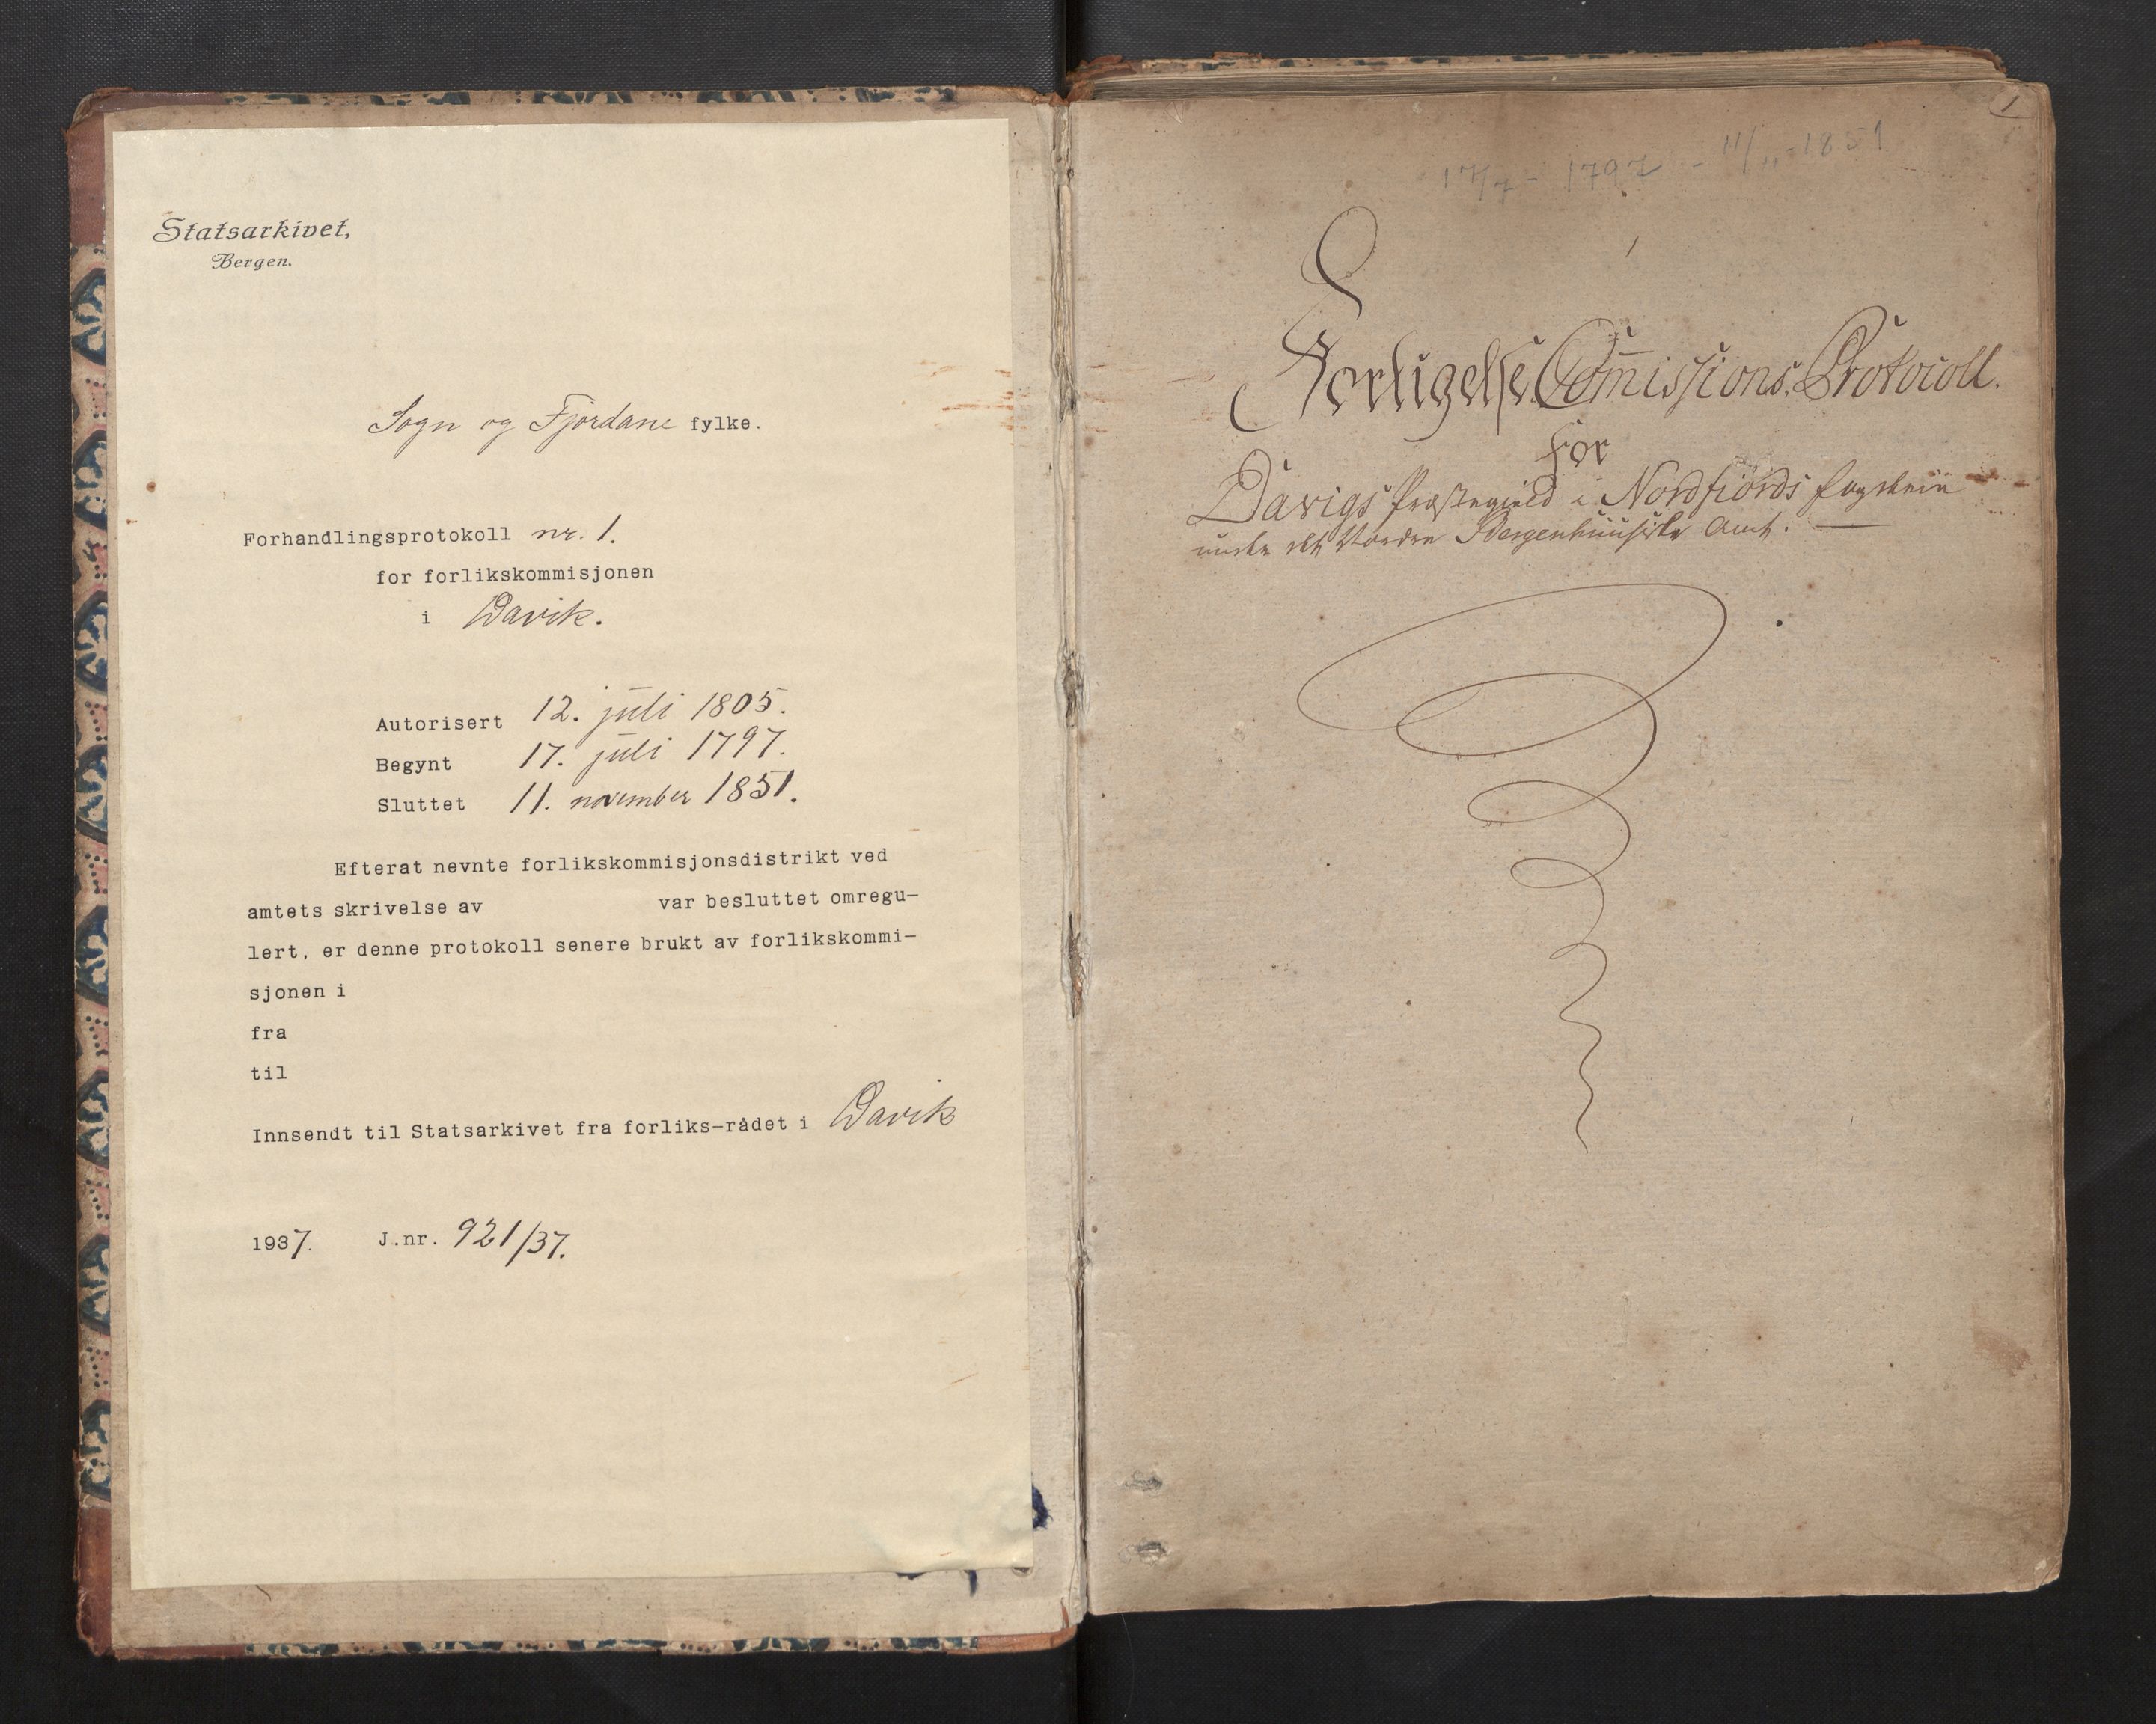 Statsarkivet,
Bergen.
Sogn og Fjordane fylke.
Forhandlingsprotokoll nr. 1.
for forlikskommisjonen
i Davik.
Autorisert 12. juli 1805.
Begynt 17. juli 1797.
Sluttet 11. november 1851.
Efterat nevnte forlikskommisjonsdistrikt ved
amtets skrivelse av var besluttet omregu-
lert, er denne protokoll senere brukt av forlikskommi-
sjonen i
fra
til
Innsendt til Statsarkivet fra forliks-rådet i Davik
1937. J.nr. 921/37.
1
17/7 - 1797 - 11/11 - 1851
Forligelse Com̅issions Protocoll.
for
Davigs Præstegield i Nordfiords fogderie
under det Norden Bergenhuusiske Amt.